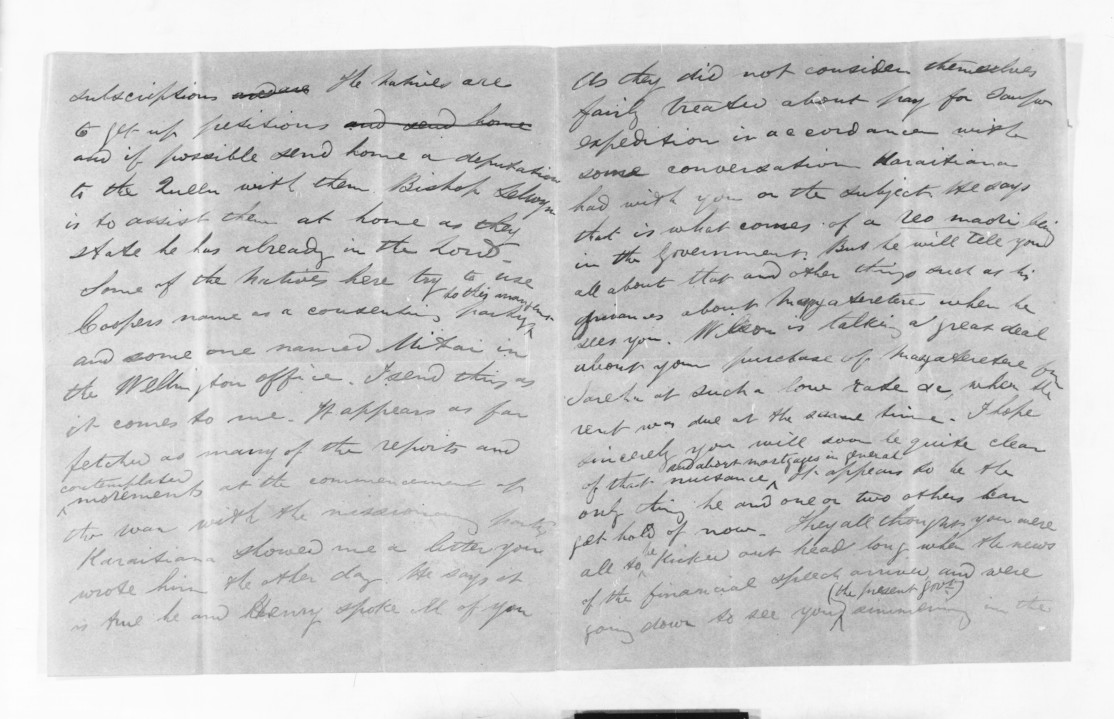 subscriptions The natives are
to get up petitions and send home
and if possible send home a deputation
to the Queen with them. Bishop Selwyn
is to assist them at home as they
state he has already in the Lords.
Some of the Natives here try to use
to this arrangement
Coopers name as a consenting party
and some one named Mitai in
the Wellington office. I send this as
it comes to me. It appears as far
fetched as many of the reports and
contemplated
movements at the commencement of
the war with the missionary party
Karaitiana showed me a letter you
wrote him the other day. He says it
is true he and Henry spoke ill of you
As they did not consider themselves
fairly treated about pay for
expedition in accordance with
some conversation Karaitiana
had with you on the subject. He says
that is what comes of a reo maori being
in the Government. But he will tell you
all about that and other things such as his
grievances about Mangateretere when he
sees you. Wilson is talking a great deal
about your purchase of Mangateretere from
at such a low rate &c, when the
rent was due at the same time. I hope
sincerely you will soon be quite clear
and about mortgages in general
of that nuisance, It appears to be the
only thing he and one or two others can
get hold of now. They all thought you were
all to be kicked out head long when the news
of the financial speech arrived and were
(the present Govt.)
going down to see you simmering in the